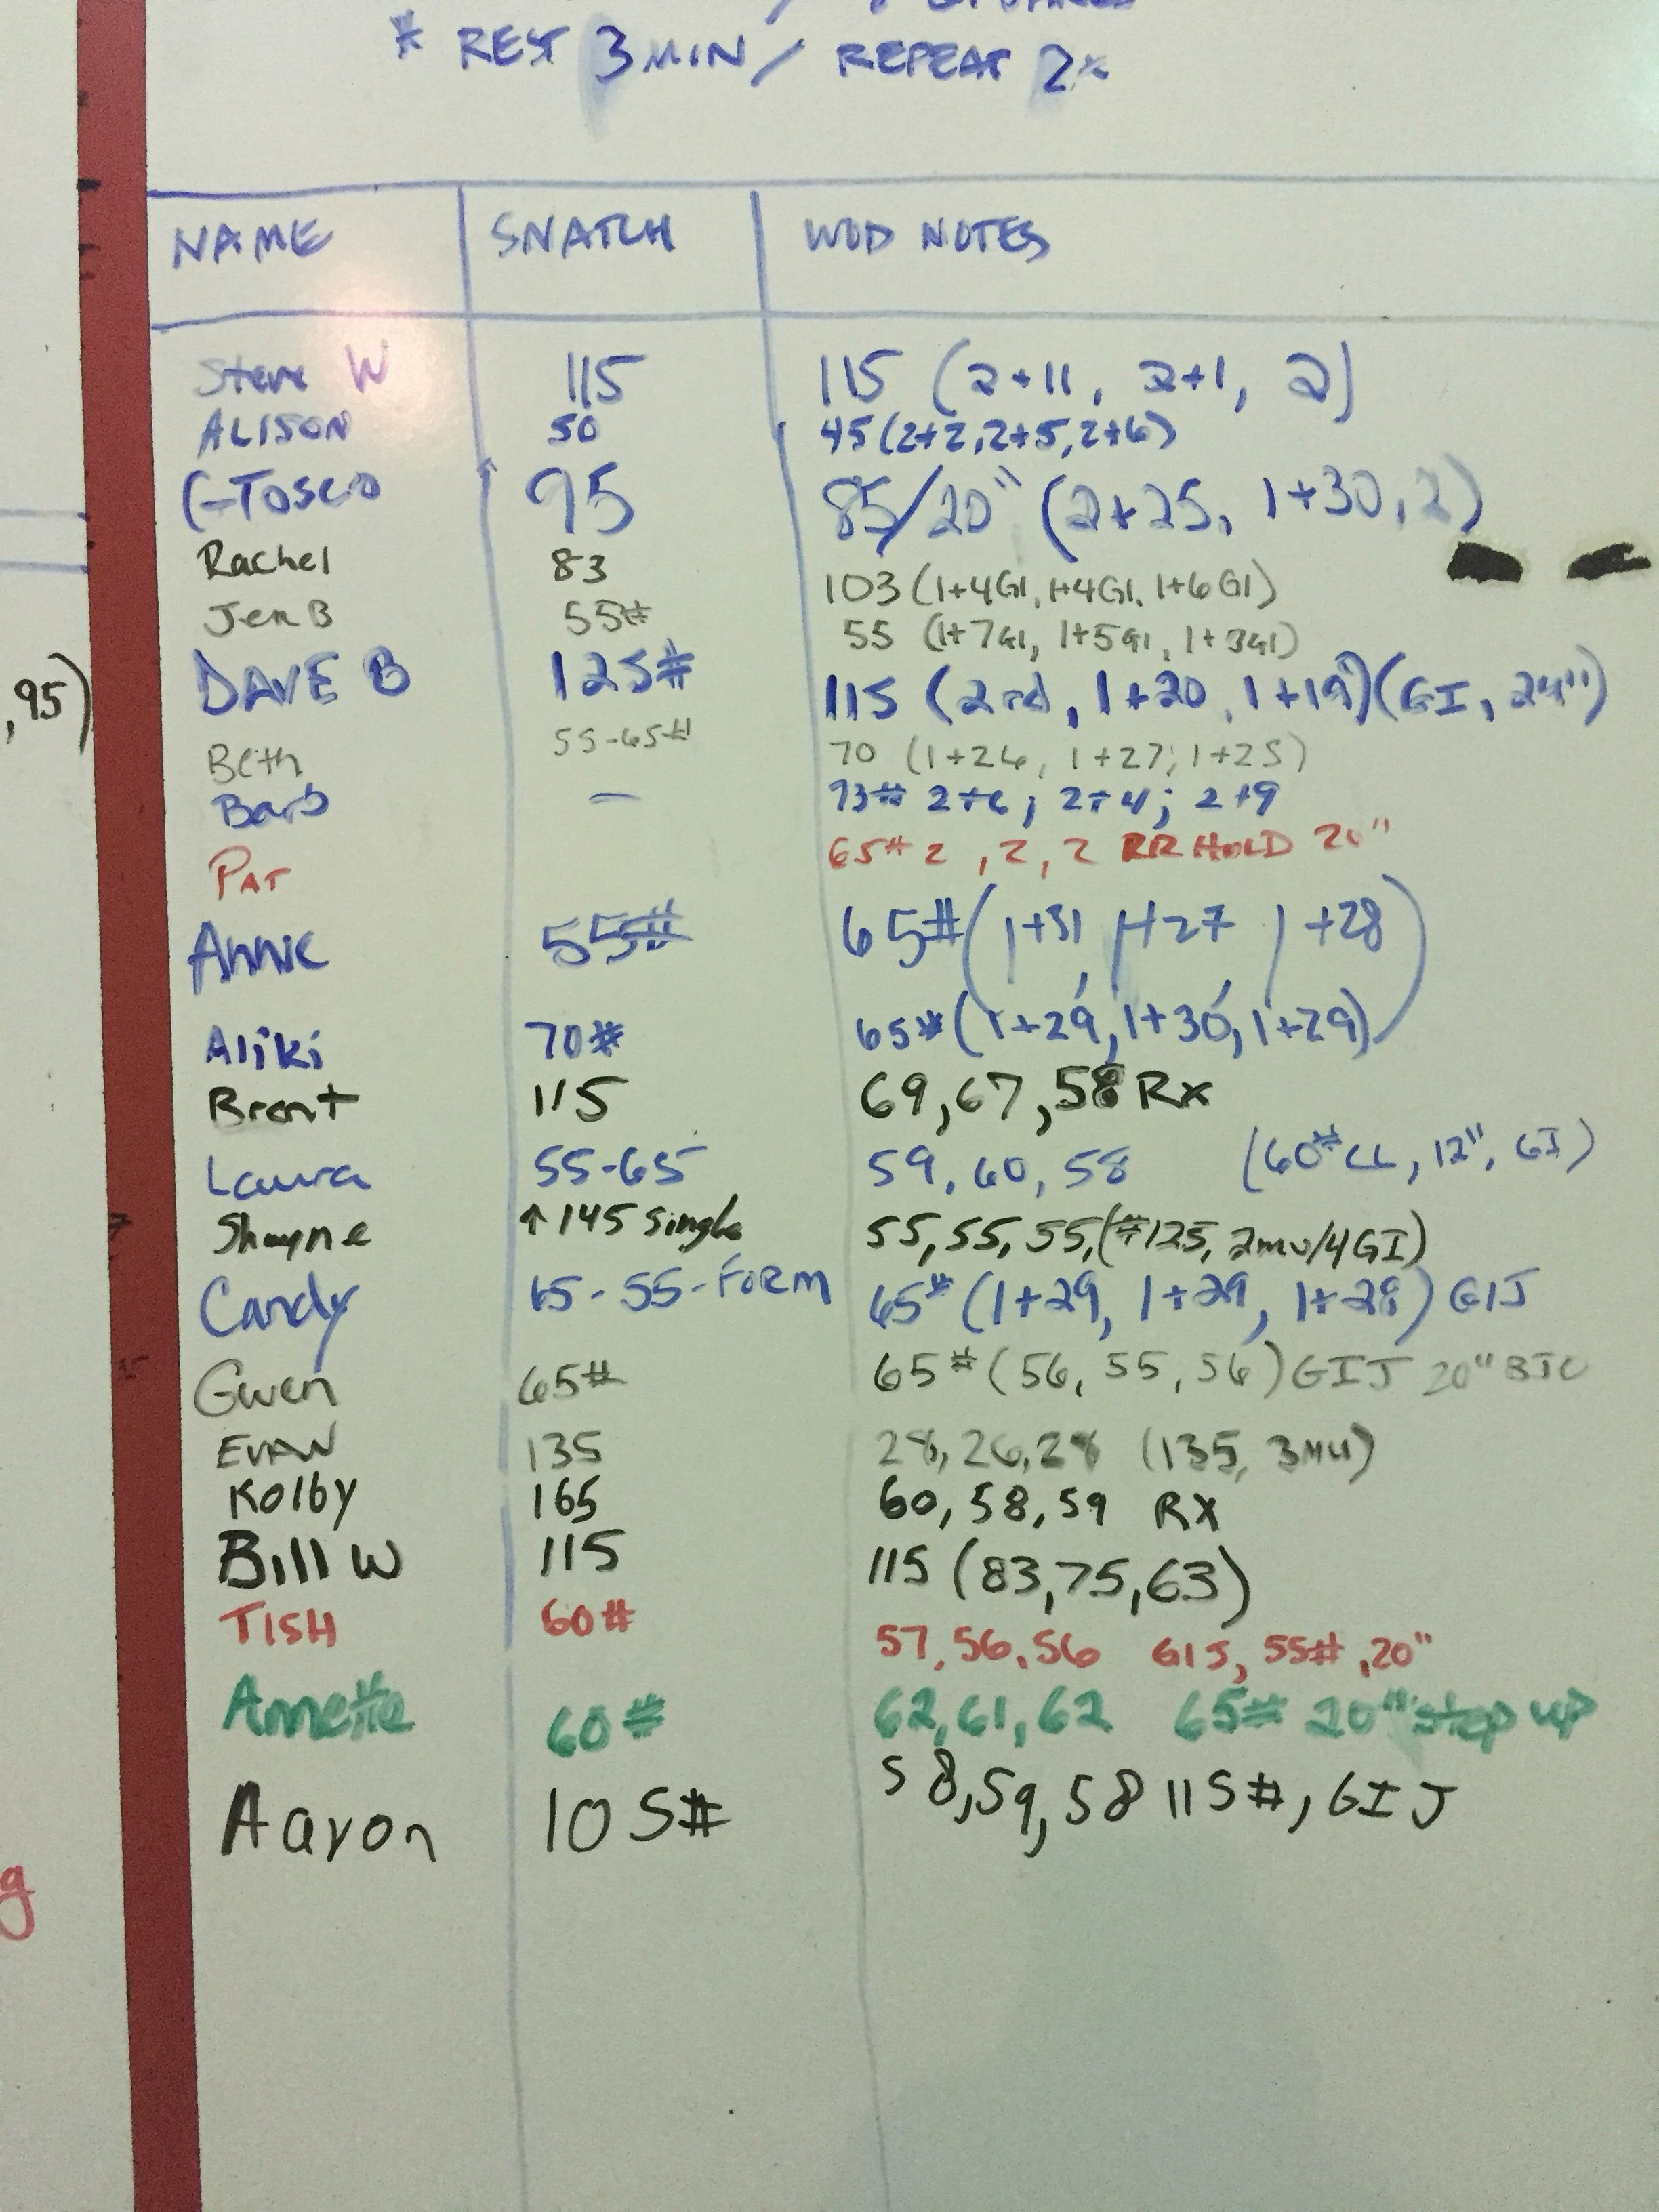 * REST 3 MIN / REPEAT 2x
NAME SNATCH WOD NOTES
Steve W 115 115 (2+11, 2+1, 2)
ALISON 50 45 (2+2, 2+5, 2+6)
G-TOSCO 95 85/20" (2+25, 1+30, 2)
Rachel 83 103 (1+4GI, 1+4GI, 1+6GI)
Jen B 55# 55 (1+7GI, 1+5GI, 1+3GI)
DAVE B 125# 115 (2rd, 1+20, 1+19) (GI, 24")
,95)
Beth 55-65# 70 (1+26, 1+27; 1+25)
Barb — 73# 2+6; 2+4; 2+9
PAT 65# 2, 2, 2 RR HOLD 20"
Annie 55# 65# (1+31, 1+27, 1+28)
Aliki 70# 65# (1+29, 1+30, 1+29)
Brent 115 69, 67, 58 Rx
Laura 55-65 59, 60, 58 (60# CL, 12", GI)
Shayne ↑145 single 55, 55, 55, (#125, 2mu/4GI)
Candy 65-55-FORM 65# (1+29, 1+29, 1+28) GIJ
Gwen 65# 65# (56, 55, 56) GIJ 20"
EVAN 135 28, 26, 28 (135, 3mu)
Kolby 165 60, 58, 59 RX
Bill W 115 115 (83, 75, 63)
TISH 60# 57, 56, 56 GIJ, 55#, 20"
Annette 60# 62, 61, 62 65# 20" step up
Aaron 105# 58, 59, 58 115#, GIJ
g